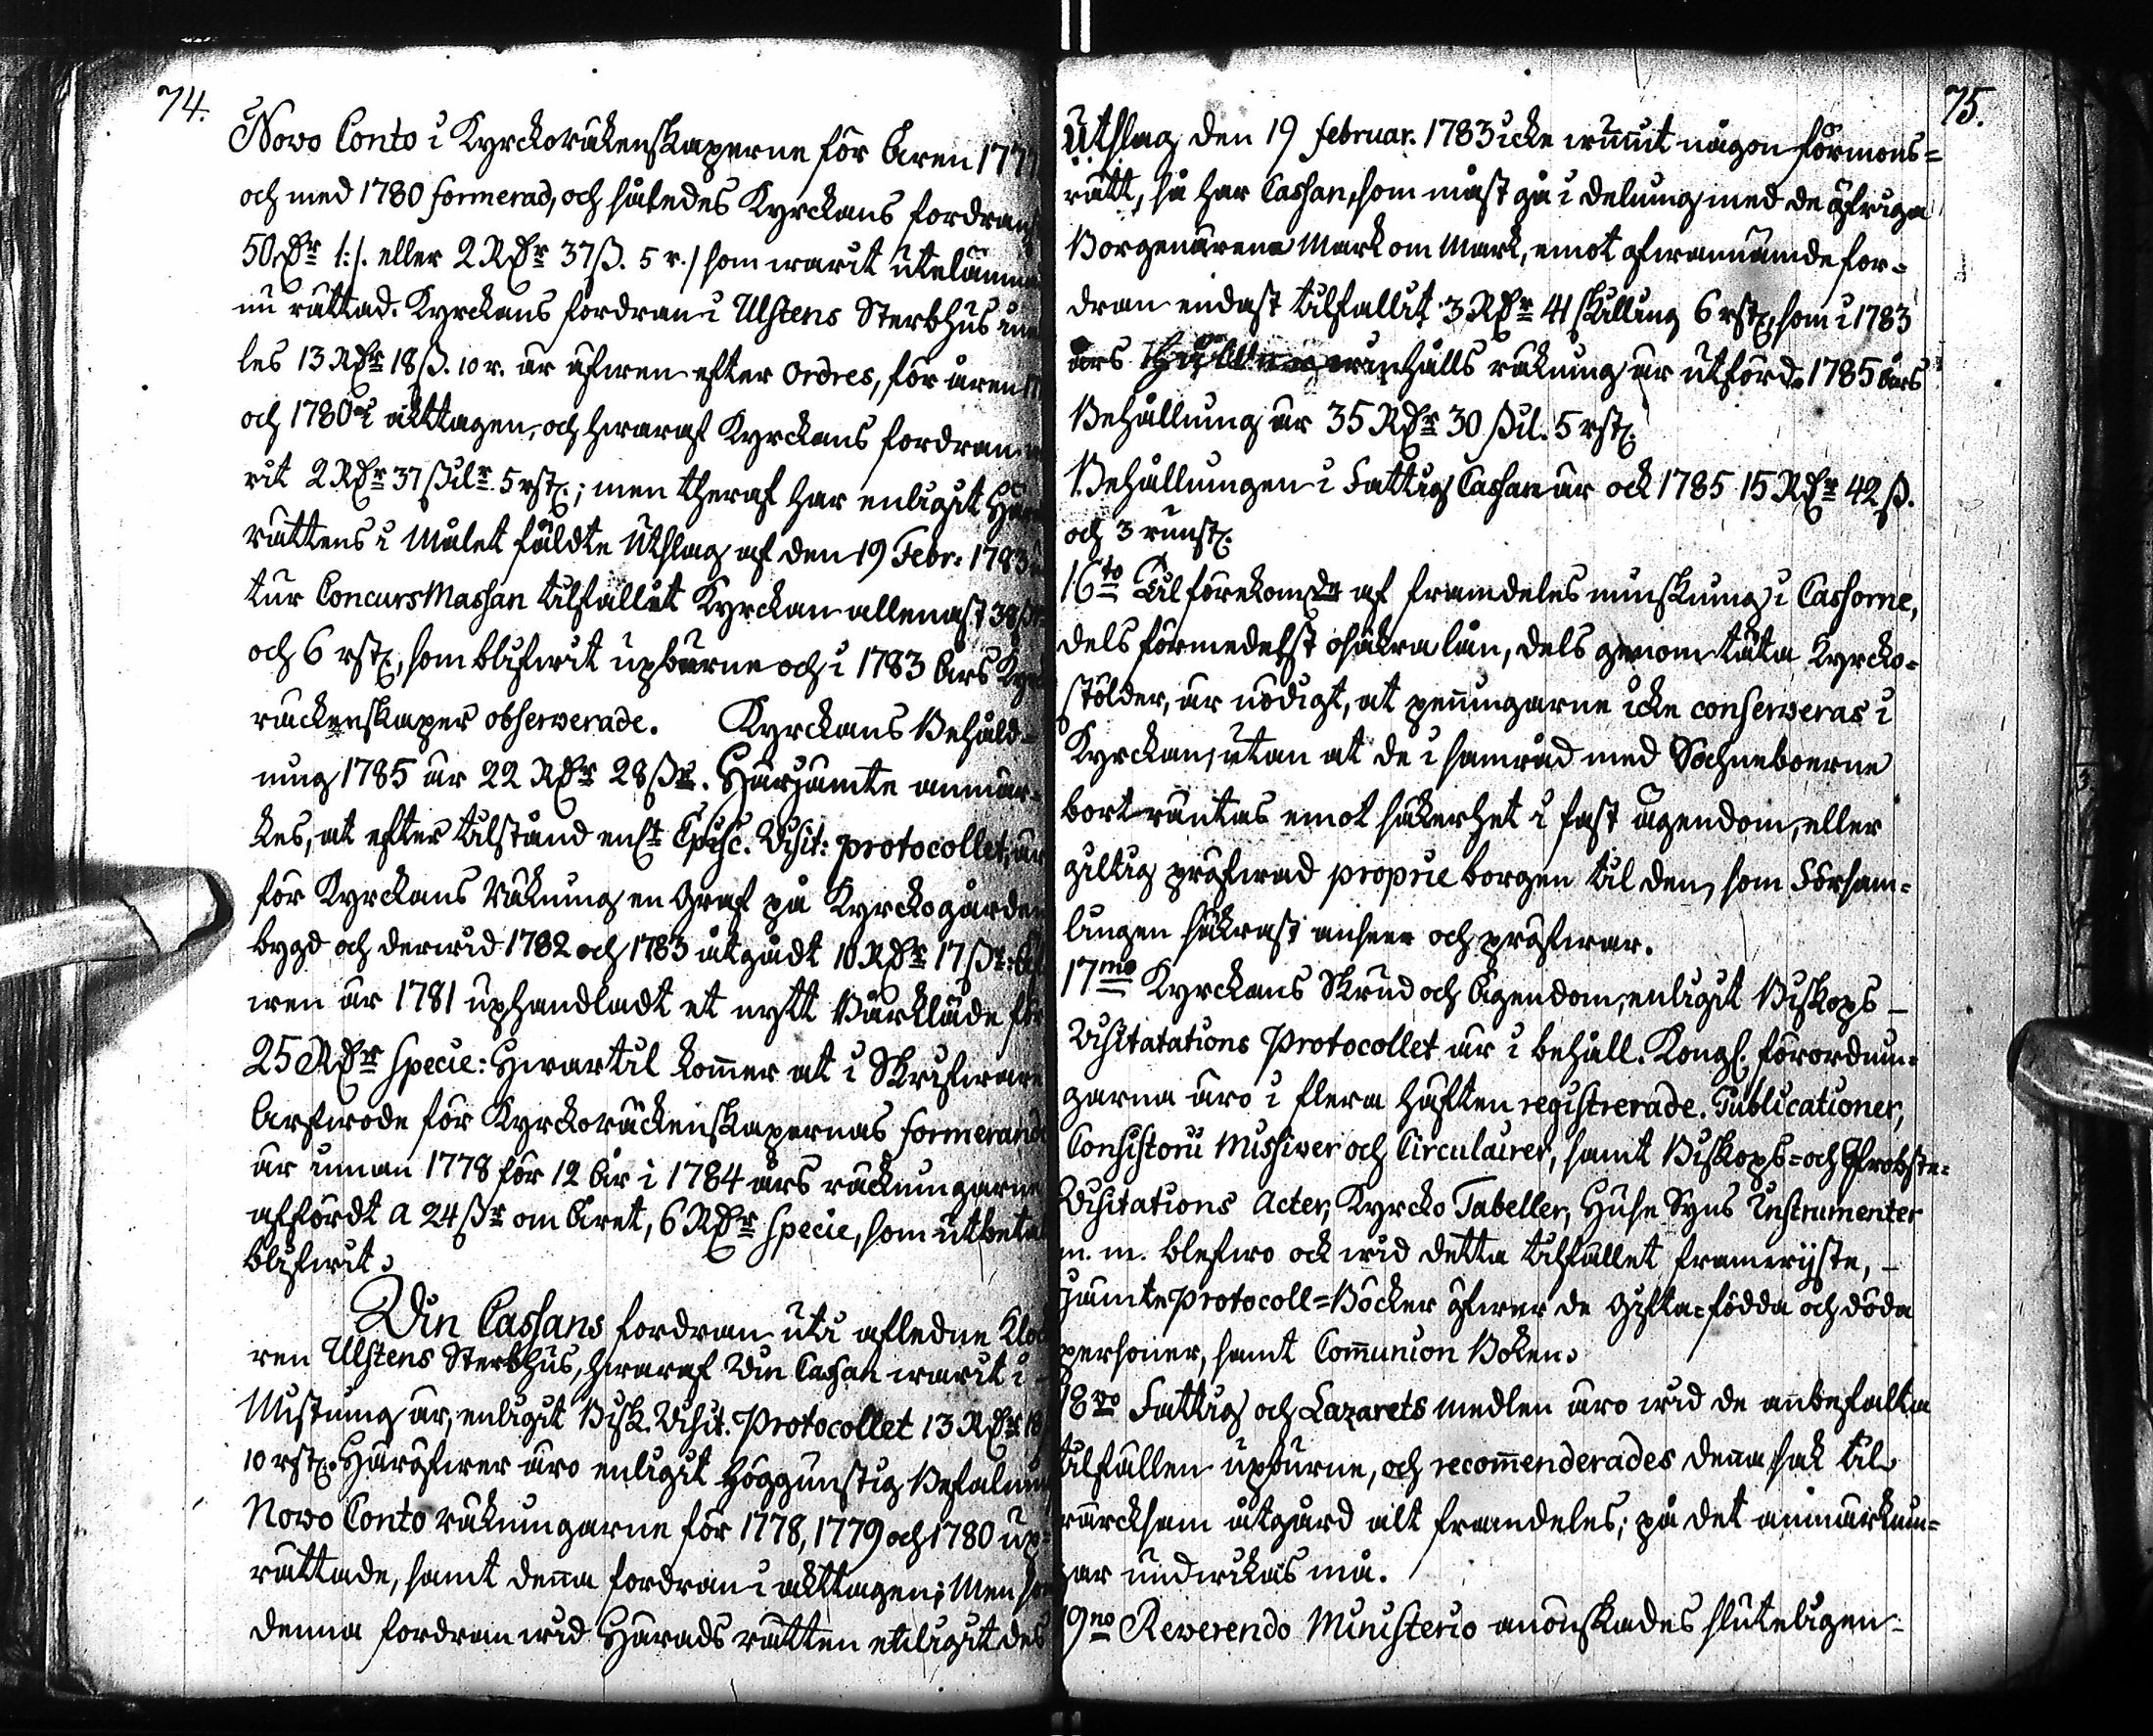 74.
Novo Conto i Kyrckoräkenskaperne för Åren 177
och med 1780 formerad, och således Kyrckans fordran
50 Dr /:/. eller 2 RDr 37 ß. 5 r./ som warit utelämn
nu rättad. Kyrckans fordran i Ulstens Sterbhus
les 13 RDr 18 ß. 10 r. är äfwen efter Ordres, för åren
och 1780 i akttagen, och hwaraf Kyrckans fordran
rit 2 RDr 37 ßilr. 5 rst.; men theraf har enligit Hä
rättens i Målet fäldte Utslag af den 19 Febr. 1783
tur Concurs Massan tilfallit Kyrckan allenast 38 ß
och 6 rst., som blifwit upburne och i 1783 Års Kyr
räckenskaper observerade. Kyrckans Behåld-
ning 1785 är 22 RDr 28 ßr. Härjämte anmär-
kes, at efter tilstånd enl. Episc. Visit: protocollet, är
för Kyrckans Räkning en Graf på Kyrckogården
bygd och derwid 1782 och 1783 åtgådt 10 RDr 17 ßr: Äf
wen är 1781 uphandladt et nytt Bårkläde för
25 RDr Specie: Hwartil kommer at i Skrifware
Arfwode för Kyrckoräckenskapernas formerande
är innan 1778 för 12 År i 1784 års räckningarne
affördt a 24 ßr om Året, 6 RDr Specie, som utbeta
blifwit.
Vin Cassans fordran uti afledne Kloc
ren Ulstens Sterbhus, hwaraf Vin Cassan warit i
Mistning är, enligit Bisk. Visit. Protocollet 13 RDr 18
10 rst. Häröfwer äro enligit höggunstig Befalning
Novo Conto räkningarne för 1778, 1779 och 1780 up-
rättade, samt denna fordran i akttagen; Men som
denna fordran wid Härads rätten enligit des
75.
Utslag den 19 februar. 1783 icke wunnit någon förmons-
rätt, så har Cassan, som måst gå i delning med de öfriga
Borgenärene Mark om Mark, emot ofwannämde for-
dran endast tilfallit 3 RDr 41 skilling 6 rst., som i 1783
års winhålls räkning är utförd. 1785 Års
Behållning är 35 RDr 30 ßil. 5 rst.
Behållningen i Fattig Cassan är ock 1785 15 RDr 42 ß.
och 3 runst.
16to Til förekomde af framdeles minskning i Cassorne,
dels förmedelst osäkra lån, dels genom täta Kyrcko-
stölder, är nödigt, at penningarne icke conserveras i
Kyrckan, utan at de i samråd med Sochneboerne
bort räntas emot säkerhet i fast ägendom, eller
giltig pröfwad proprie borgen til den, som Försam-
lingen säkrast anser och pröfwar.
17mo Kyrckans Skrud och Ägendom, enligit Biskops-
Visitatations Protocollet är i behåll. Kongl. förordnin-
garna äro i flera häften registrerade. Publicationer,
Consistorii Missiver och Circulairer, samt Biskops- och Probste-
Visitations Acter, Kyrcko Tabeller, Huse Syns Instrumenter
m. m. blefwo ock wid detta tilfället framwiste, -
jämte Protocoll-Böcker öfwer de Gifta- födda och döda
personer, samt Communion Boken.
18vo Fattig och Lazarets medlen äro wid de anbefalta
tilfällen upburne, och recommenderades denna sak til
wärcksam åtgärd alt framdeles, på det anmärknin-
gar undwikas må.
19no Reverendo Ministerio anönskades sluteligen-